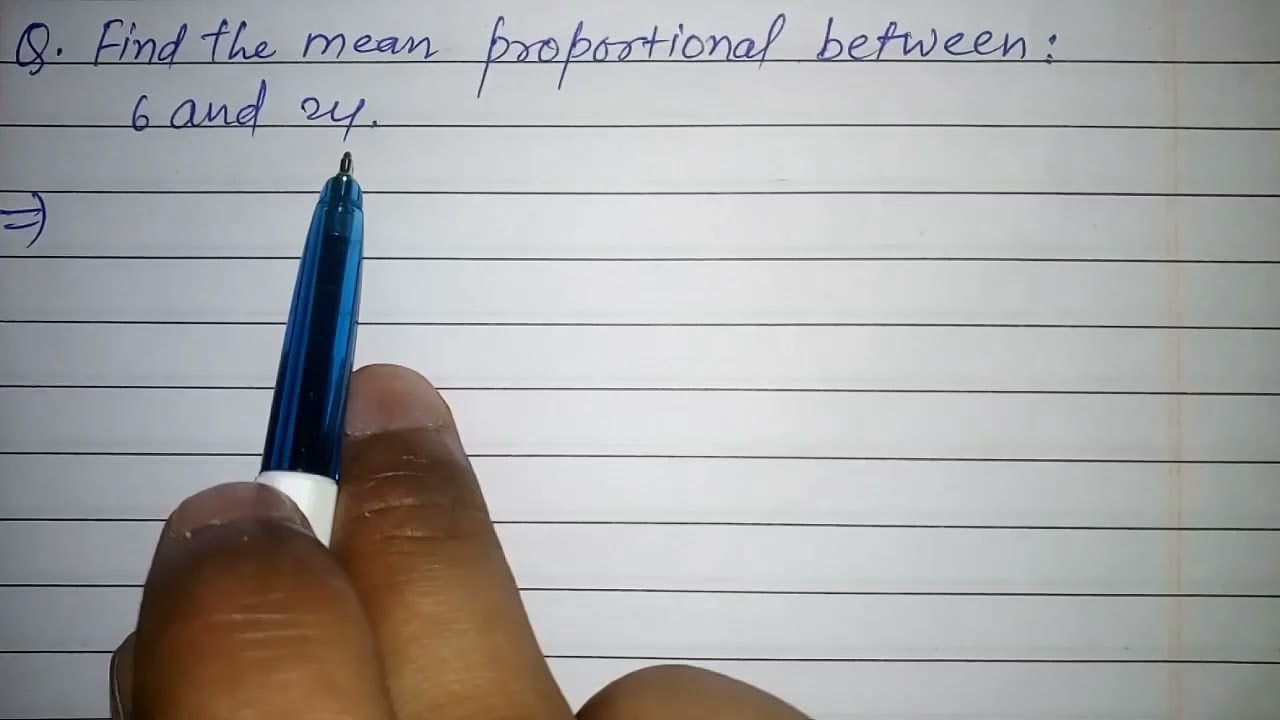 Q. Find the mean proportional between:
6 and 24.
⇒